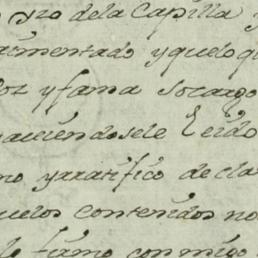 yzo dela Capilla y
armentado yqueloq
voz y fama socargo
haciendosele Leido
no yrratifico decla
quelos contenidos no
lo firmo con migo